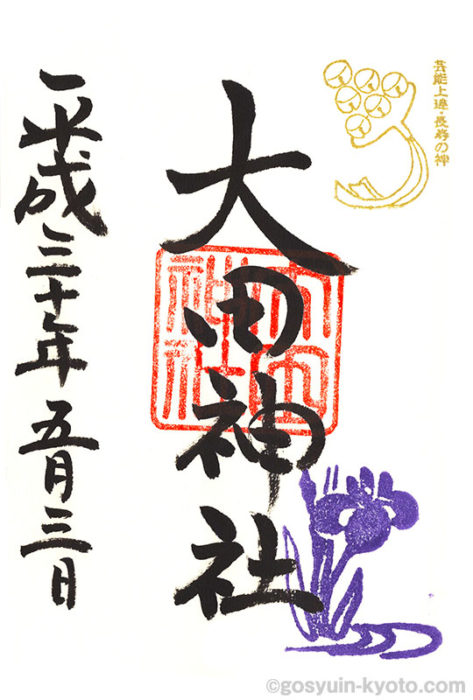 芸能上達・長寿の神
大田神社
大田神社
平成三十年五月三日
©gosyuin-kyoto.com